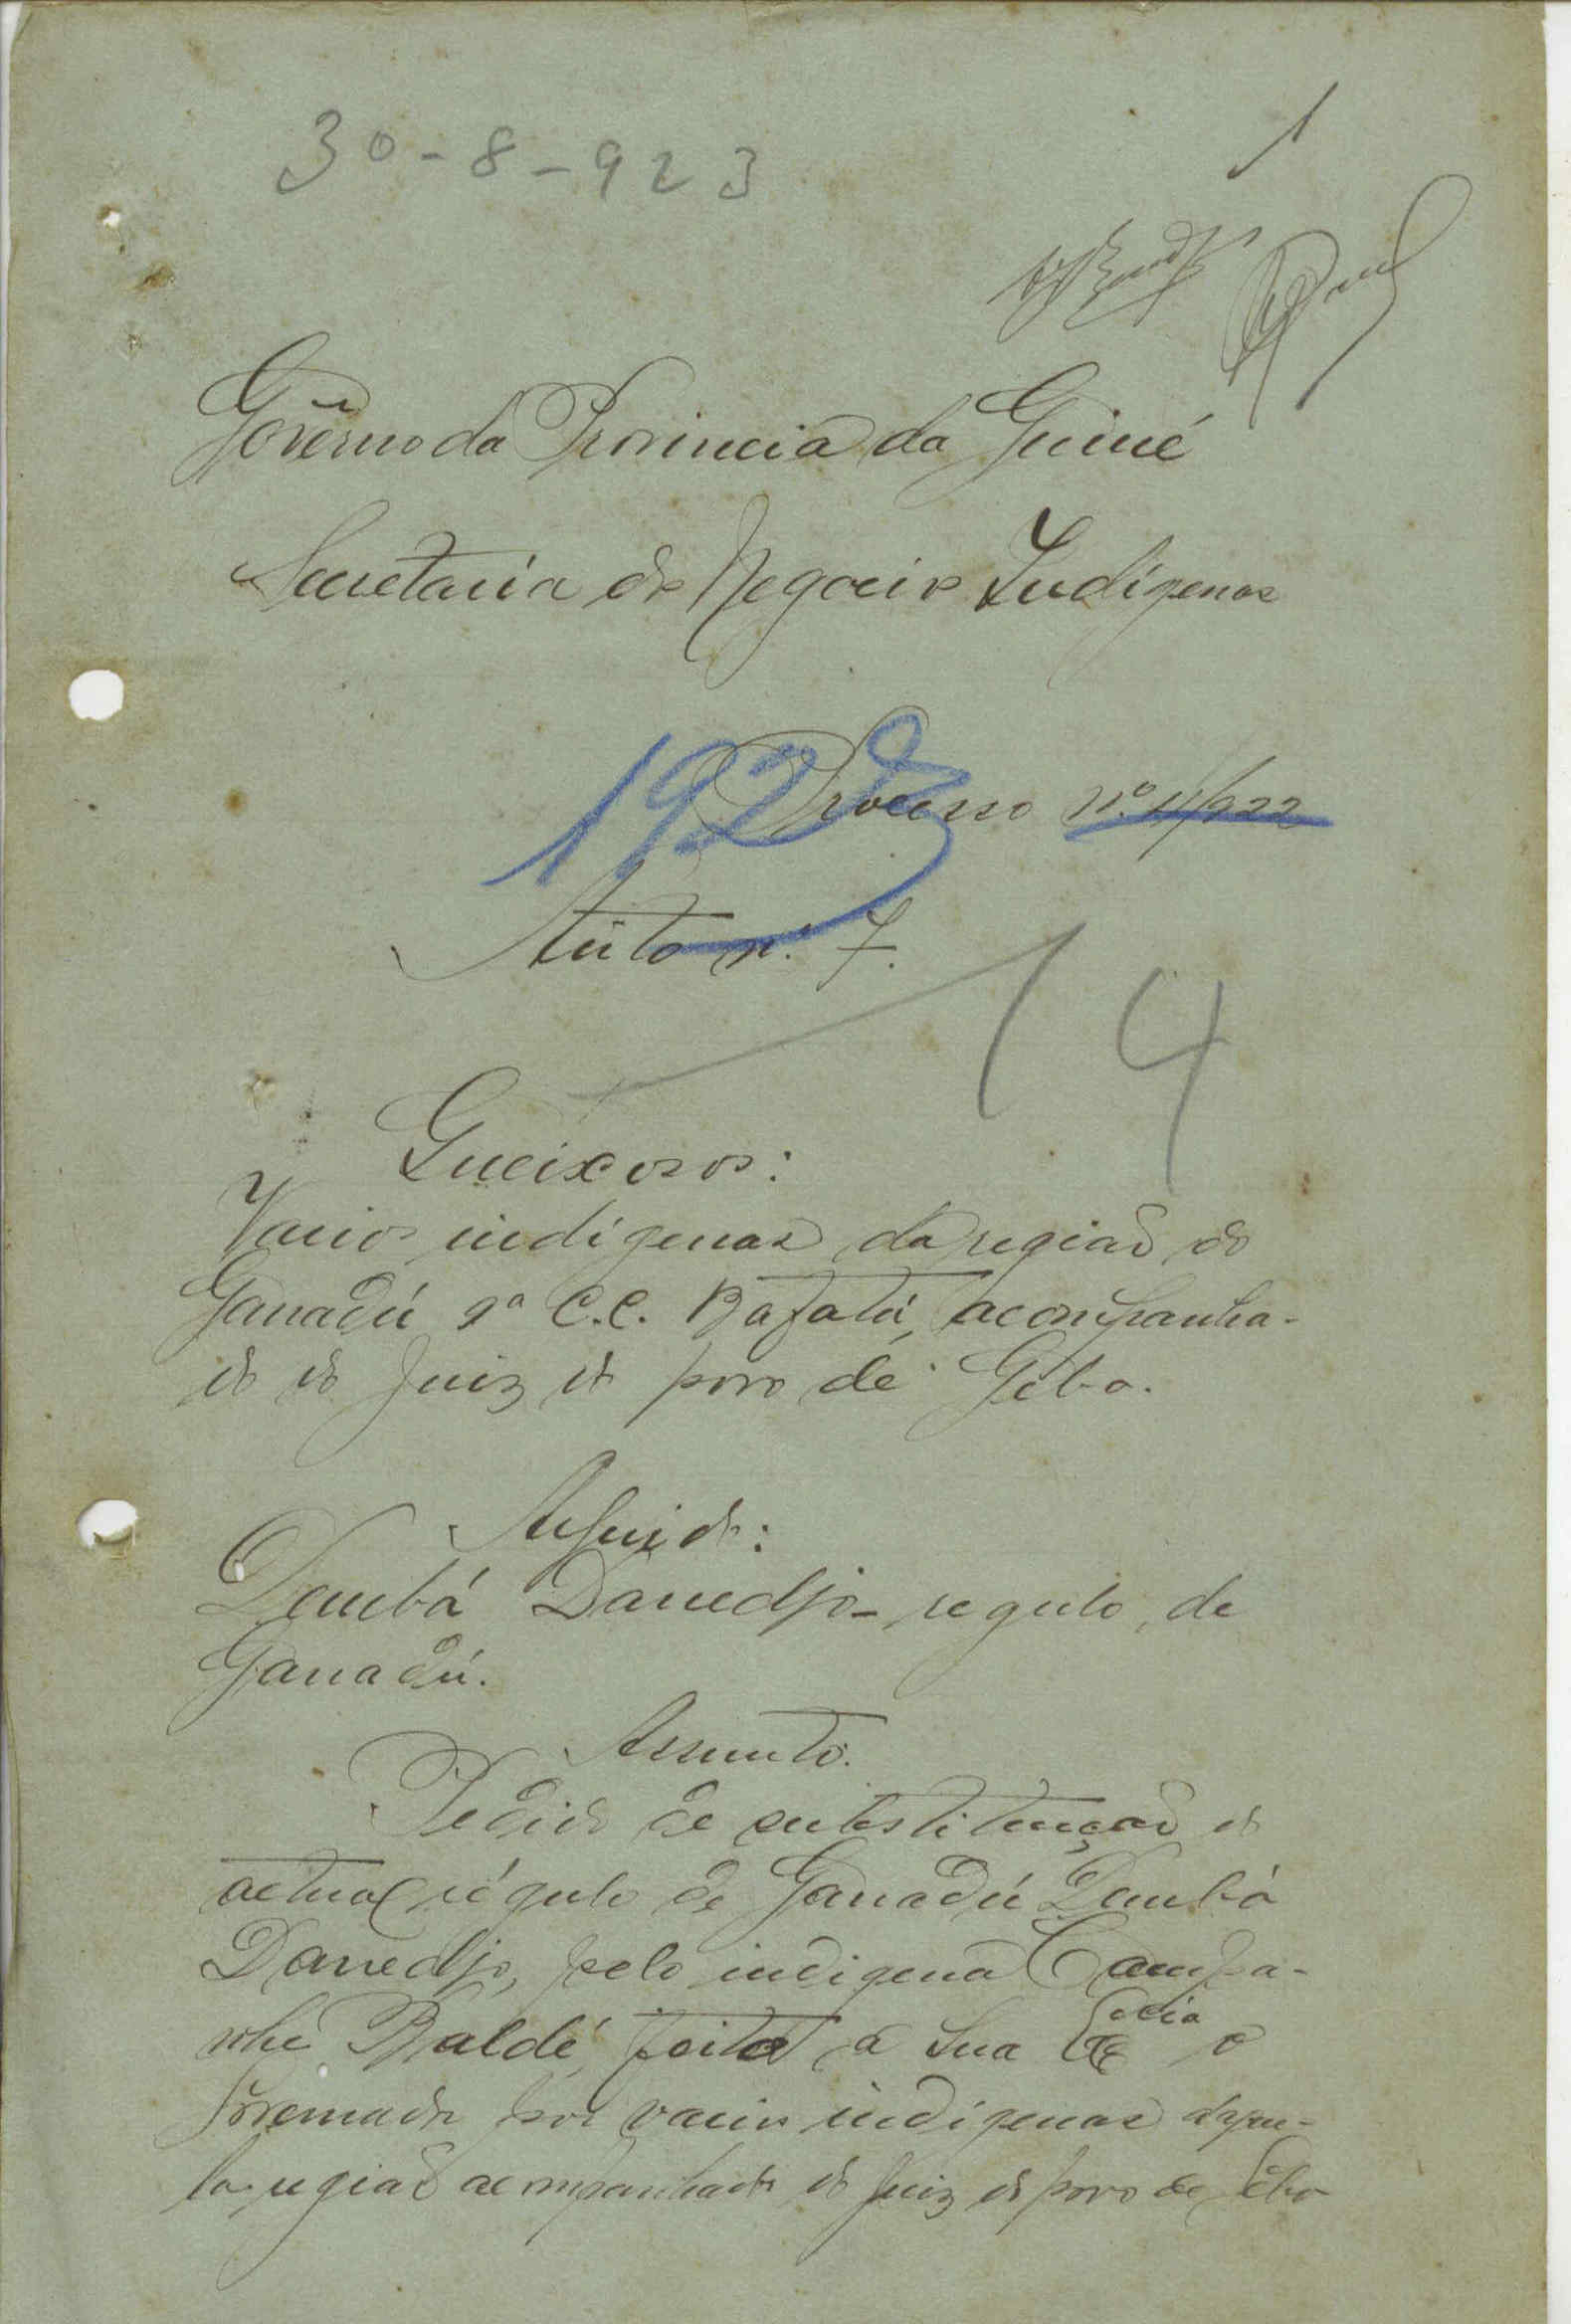 30-8-923
1
Govêrno da Provincia da Guiné
Secretaria dos Negocios Indígenas
192
Processo nº. 11/922
Auto n.º 7.
14
Queixosos:
Varios indígenas da região do
Ganadú 9ª C.C. Bafatá, acompanha-
do do Juiz do povo de Geba.
Arguido:
Dembá Danedjo - regulo de
Ganadú.
Assunto.
Pedido de substituição do
actual régulo de Ganadú Dembá
Danedjo, pelo indigena Campa-
Baldé, feito a Sua Excia o
por varios indígenas daque-
la região acompanhado do Juiz do povo de Gêba